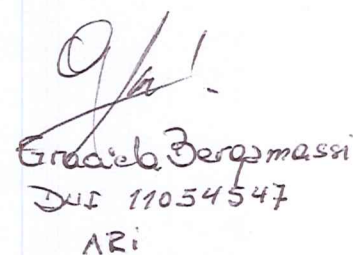 Graciela Bergamassi
DNI 11054547